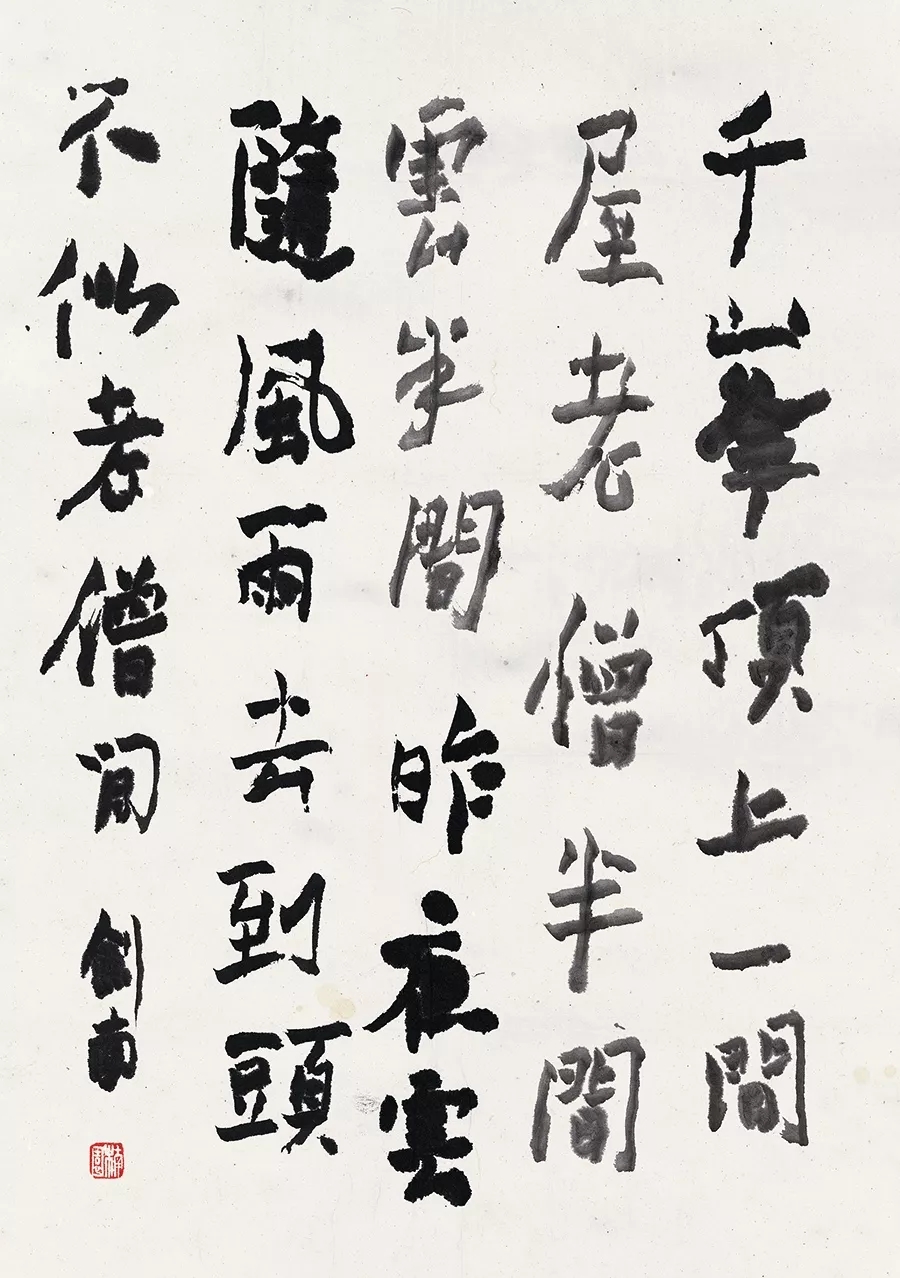 千峯頂上一間
屋老僧半間
雲半間昨夜雲
隨風雨去到頭
不似老僧閒
劍南
楠園